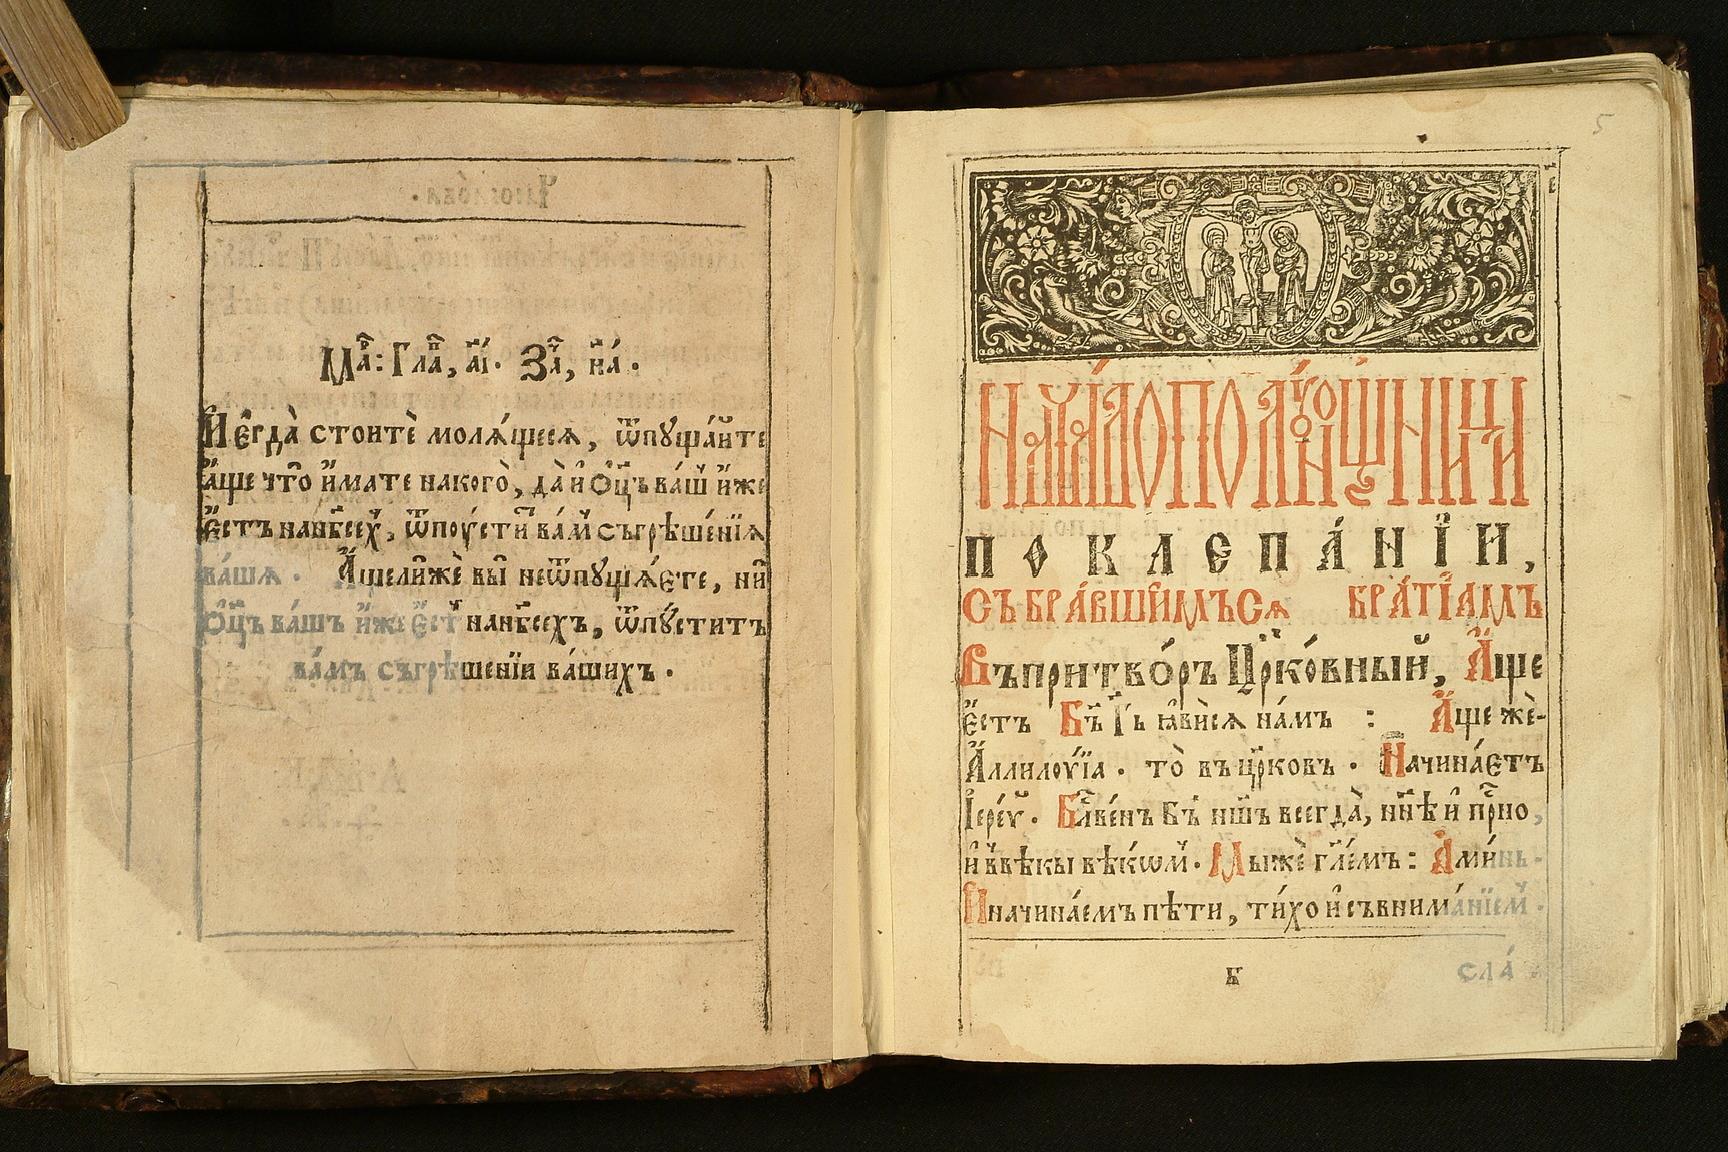 Маⷬ҇: Глаⷡ҇, а҃і. За҆ⷱ҇, н҃а.
И҆ є҆гда̀ стоитѐ молѧ́щесѧ, ѿпꙋща́йте
а҆́ще что̀ и҆́мате накого̀, да̀ и҆ ѻ҆ц҃ъ ва́шъ и҆́же
є҆́стъ нанб҃сеⷯ, ѿпоу́стиⷮ ва́мⸯ съгрѣше́нїѧ
ва́шѧ. А҆́щелижѐ вы̀ неѿпꙋща́єте, ни
ѻ҆ц҃ъ ва́шъ и҆́же є҆́ст нанб҃сехъ, ѿпꙋ́ститъ
ва́мъ съгрѣшенїи ва́шихъ.
5
НАЧА́ЛО ПОЛꙊ́НОЩНИЦИ
ПОКЛЕПА́НЇИ,
СЪБРА́ВШИМЪСѧ БРА́ТЇАМЪ
Въпритво́ръ Цр҃ко́вный, А҆́ще
є҆́стъ Бг҃ъ Гь ꙗ҆ви́сѧ на́мъ : А҆́ще жѐ-
А҆ллилоу́їа. то̀ въ цр҃ковъ. Начина́єтъ
І҆ере́ѵ. Блⷭ҇ве́нъ Бг҃ъ нш҃ъ всегда̀, нн҃ѣ и҆ прⷭ҇но,
и҆ вⸯвѣкы вѣкѡ́мⸯ. Мыжѐ гл҃емъ: А҆ми́нь.
И҆начина́емъ пѣти, ти́хо и҆ съвнима́нїемⸯ.
в҃
сла́